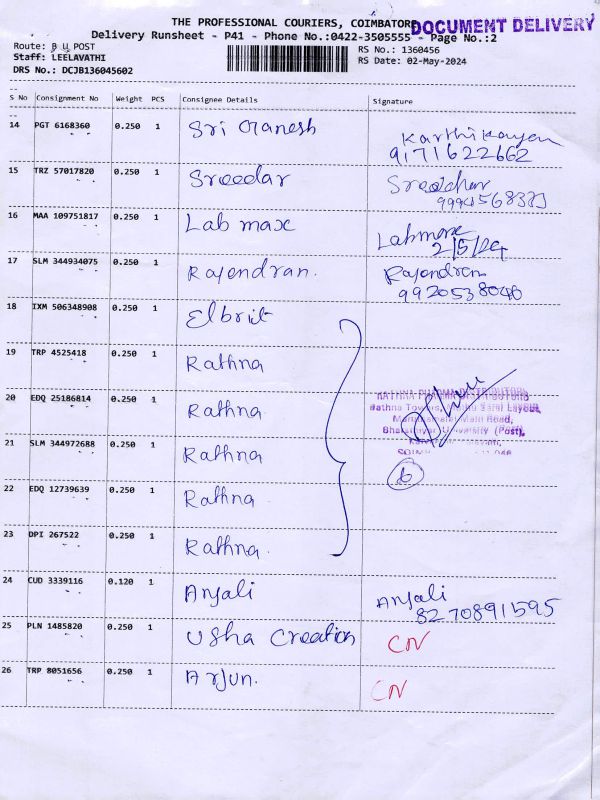 THE PROFESSIONAL COURIERS, COIMBATORE
DOCUMENT DELIVERY
Delivery Runsheet - P41 - Phone No.:0422-3505555 - Page No.:2
Route: B U POST
RS No.: 1360456
Staff: LEELAVATHI
RS Date: 02-May-2024
DRS No.: DCJB136045602
S No Consignment No Weight PCS Consignee Details Signature
14 PGT 6168360 0.250 1 Sri Ganesh Karthikayan
9171622662
15 TRZ 57017820 0.250 1 Sreedar
16 MAA 109751817 0.250 1 Lab max Labmax
2/5/24
17 SLM 344934075 0.250 1 Rajendran. Rajendran
9920538040
18 IXM 506348908 0.250 1 Elbrit
19 TRP 4525418 0.250 1 Rathna
20 EDQ 25186814 0.250 1 Rathna
RATHNA PHARMA DISTRIBUTORS
Rathna Towers, Layout,
Main Road,
University (Post),
21 SLM 344972688 0.250 1 Rathna
6
22 EDQ 12739639 0.250 1 Rathna
23 DPI 267522 0.250 1 Rathna.
24 CUD 3339116 0.120 1 Anjali Anjali
8270891595
25 PLN 1485820 0.250 1 Usha Creation CN
26 TRP 8051656 0.250 1 Arjun. CN